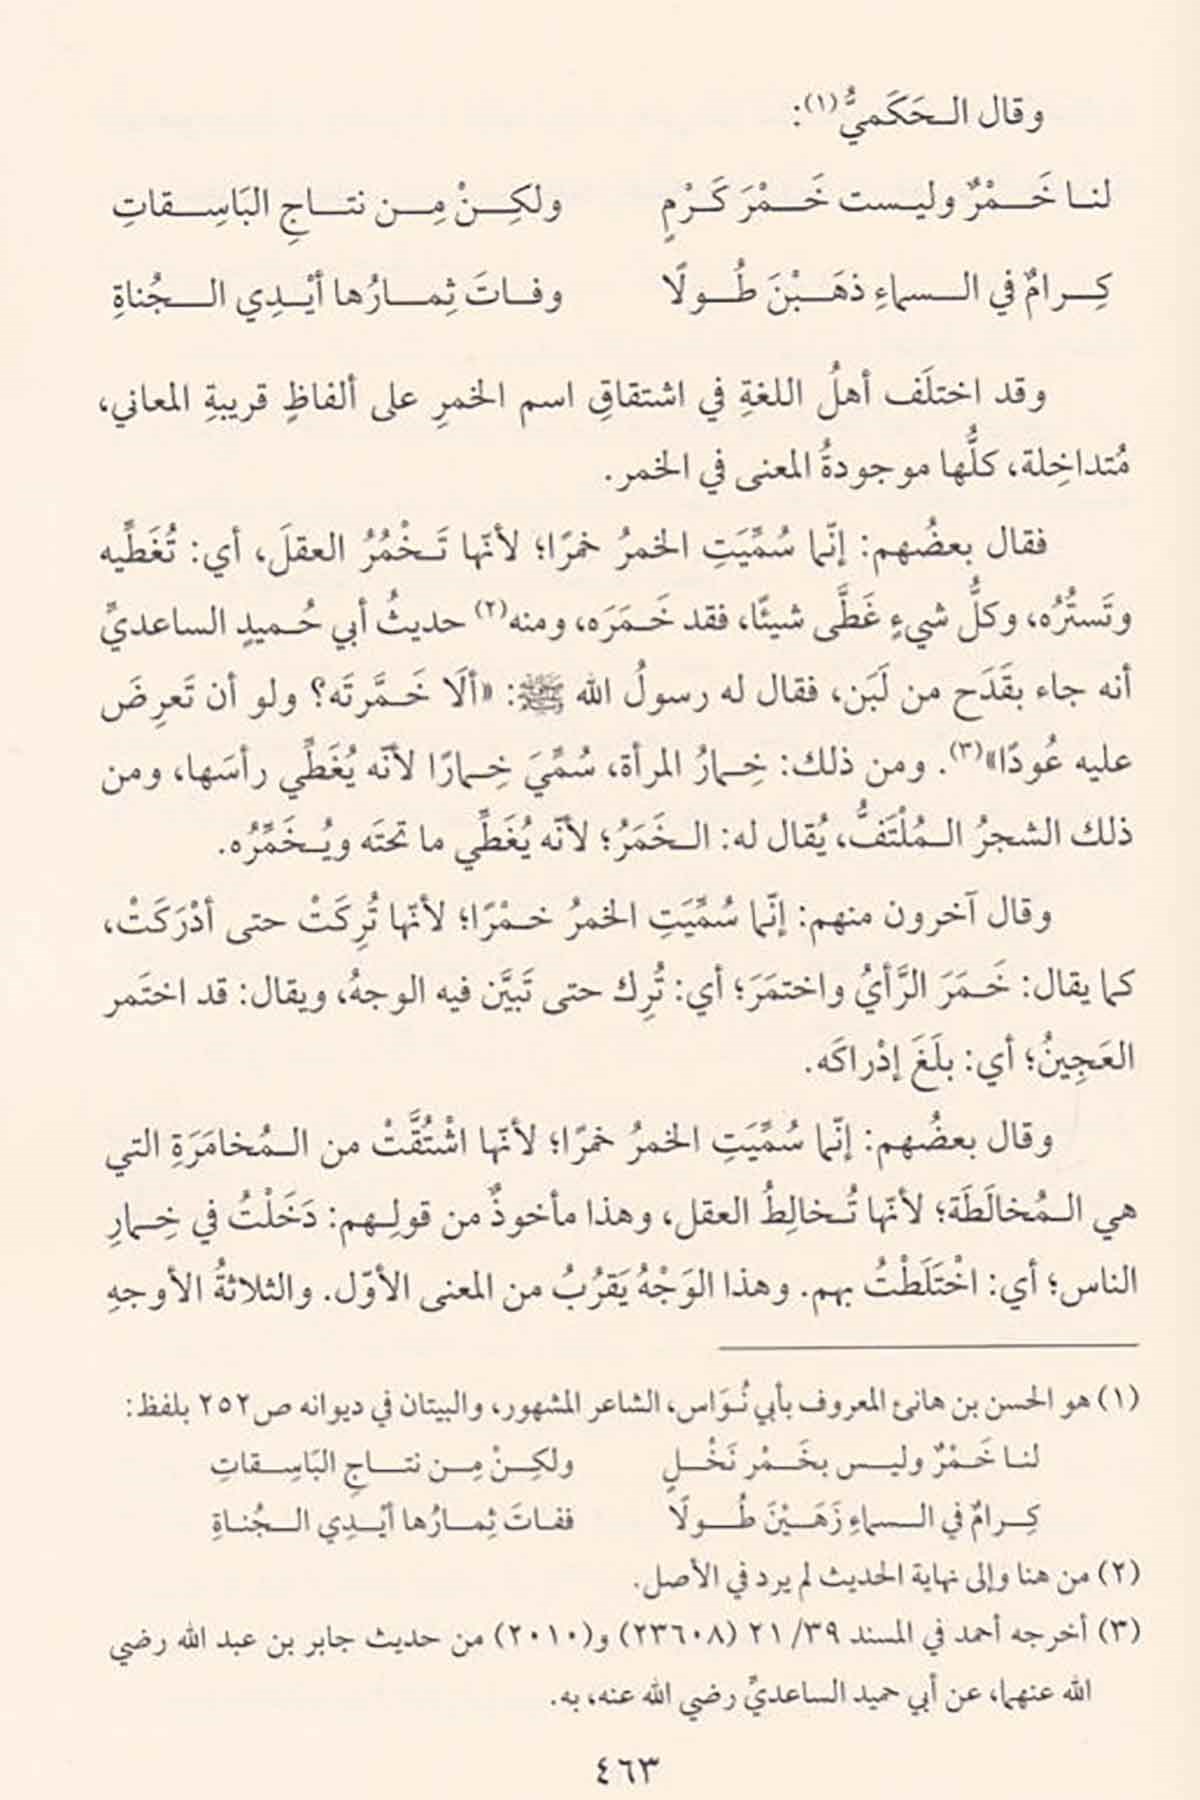 وقال الـحَكَميُّ(١):
لنـا خَـمْرٌ وليـست خَـمْرَ كَـرْمٍ ولكِـنْ مِـن نتـاجِ البَاسِـقاتِ
كِـرامٌ في الـسماءِ ذهَـبْنَ طُـولًا وفـاتَ ثِمـارُها أيْـدِي الـجُناةِ
وقد اختلَف أهلُ اللغةِ في اشتقاقِ اسم الخمرِ على ألفاظٍ قريبةِ المعاني،
مُتداخِلة، كلُّها موجودةُ المعنى في الخمر.
فقال بعضُهم: إنّما سُمِّيَتِ الخمرُ خمرًا؛ لأنّها تَـخْمُرُ العقلَ، أي: تُغَطِّيه
وتَستُرُه، وكلُّ شيءٍ غَطَّى شيئًا، فقد خَـمَرَه، ومنه(٢) حديثُ أبي حُـميدٍ الساعديِّ
أنه جاء بقَدَح من لَبَن، فقال له رسولُ الله ﷺ: «ألَا خَـمَّرتَه؟ ولو أن تَعرِضَ
عليه عُودًا»(٣). ومن ذلك: خِـمارُ المرأة، سُمِّيَ خِـمارًا لأنّه يُغَطِّي رأسَها، ومن
ذلك الشجرُ الـمُلْتَفُّ، يُقال له: الـخَمَرُ؛ لأنّه يُغَطِّي ما تحتَه ويُـخَمِّرُه.
وقال آخرون منهم: إنّما سُمِّيَتِ الخمرُ خـمْرًا؛ لأنّها تُرِكَتْ حتى أدْرَكَتْ،
كما يقال: خَـمَرَ الرَّأيُ واختمَرَ؛ أي: تُرِك حتى تَبيَّن فيه الوجهُ، ويقال: قد اختَمر
العَجِينُ؛ أي: بلَغَ إدْراكَه.
وقال بعضُهم: إنّما سُمِّيَتِ الخمرُ خمرًا؛ لأنّها اشْتُقَّتْ من الـمُخامَرَةِ التي
هي الـمُخالَطَة؛ لأنّها تُـخالِطُ العقل، وهذا مأخوذٌ من قولِـهم: دَخَلْتُ في خِـمارِ
الناس؛ أي: اخْتَلَطْتُ بهم. وهذا الوَجْهُ يَقرُبُ من المعنى الأوّل. والثلاثةُ الأوجهِ
(١) هو الحسن بن هانئ المعروف بأبي نُوَاس، الشاعر المشهور، والبيتان في ديوانه ص٢٥٢ بلفظ:
لنـا خَـمْرٌ وليـس بخَـمْر نَخْـلٍ ولكِـنْ مِـن نتـاجِ البَاسِـقاتِ
كِـرامٌ في الـسماءِ زَهَـيْنَ طُـولًا ففـاتَ ثِمـارُها أيْـدِي الـجُناةِ
(٢) من هنا وإلى نهاية الحديث لم يرد في الأصل.
(٣) أخرجه أحمد في المسند ٣٩/ ٢١ (٢٣٦٠٨) و(٢٠١٠) من حديث جابر بن عبد الله رضي
الله عنهما، عن أبي حميد الساعديِّ رضي الله عنه، به.
٤٦٣